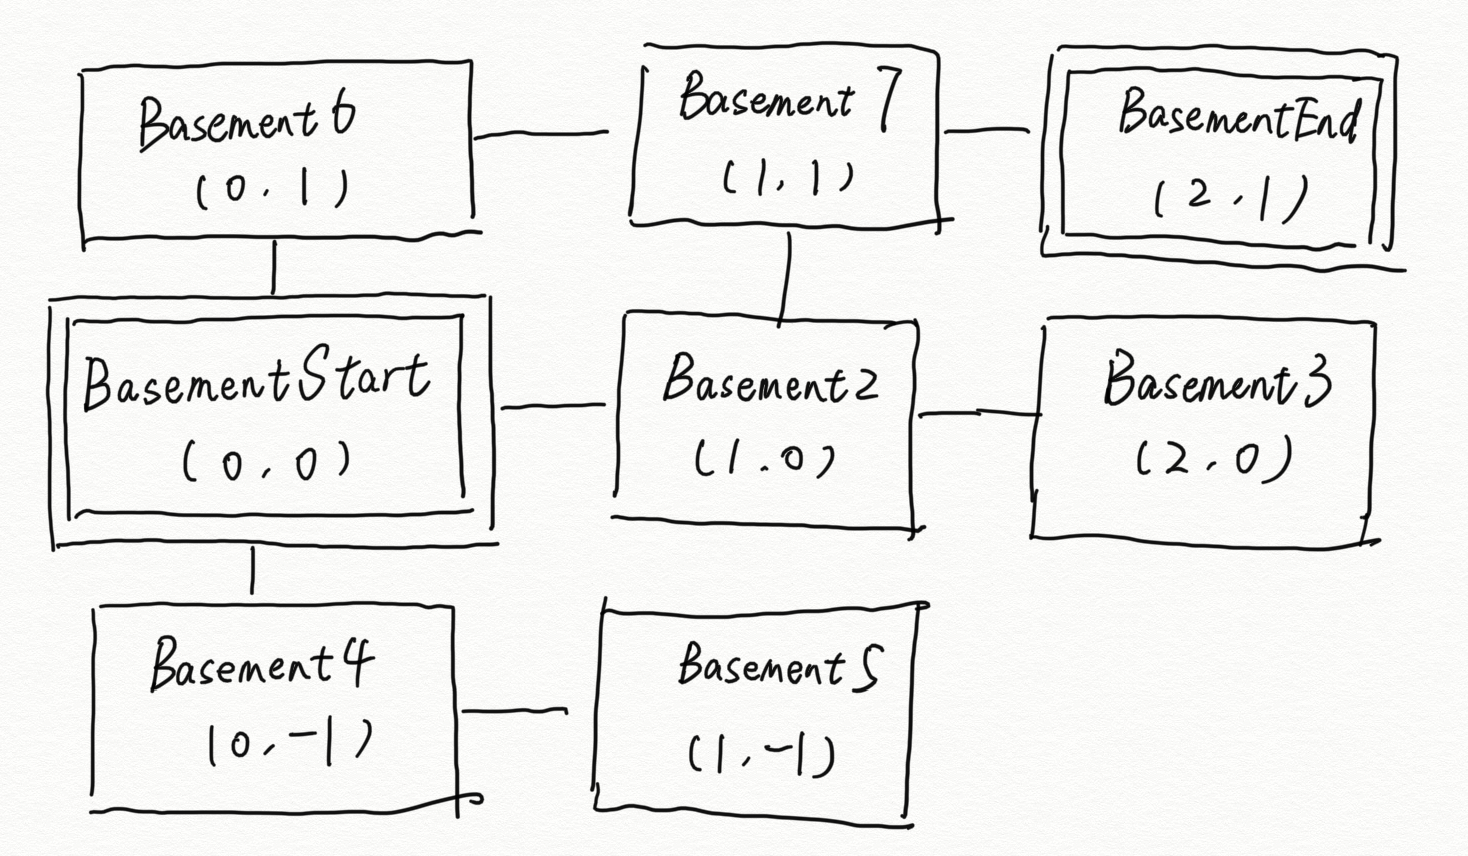 Basement 6
(0, 1)
Basement 7
(1, 1)
BasementEnd
(2, 1)
BasementStart
(0, 0)
Basement2
(1.0)
Basement3
(2, 0)
Basement4
(0, -1)
Basement5
(1, -1)